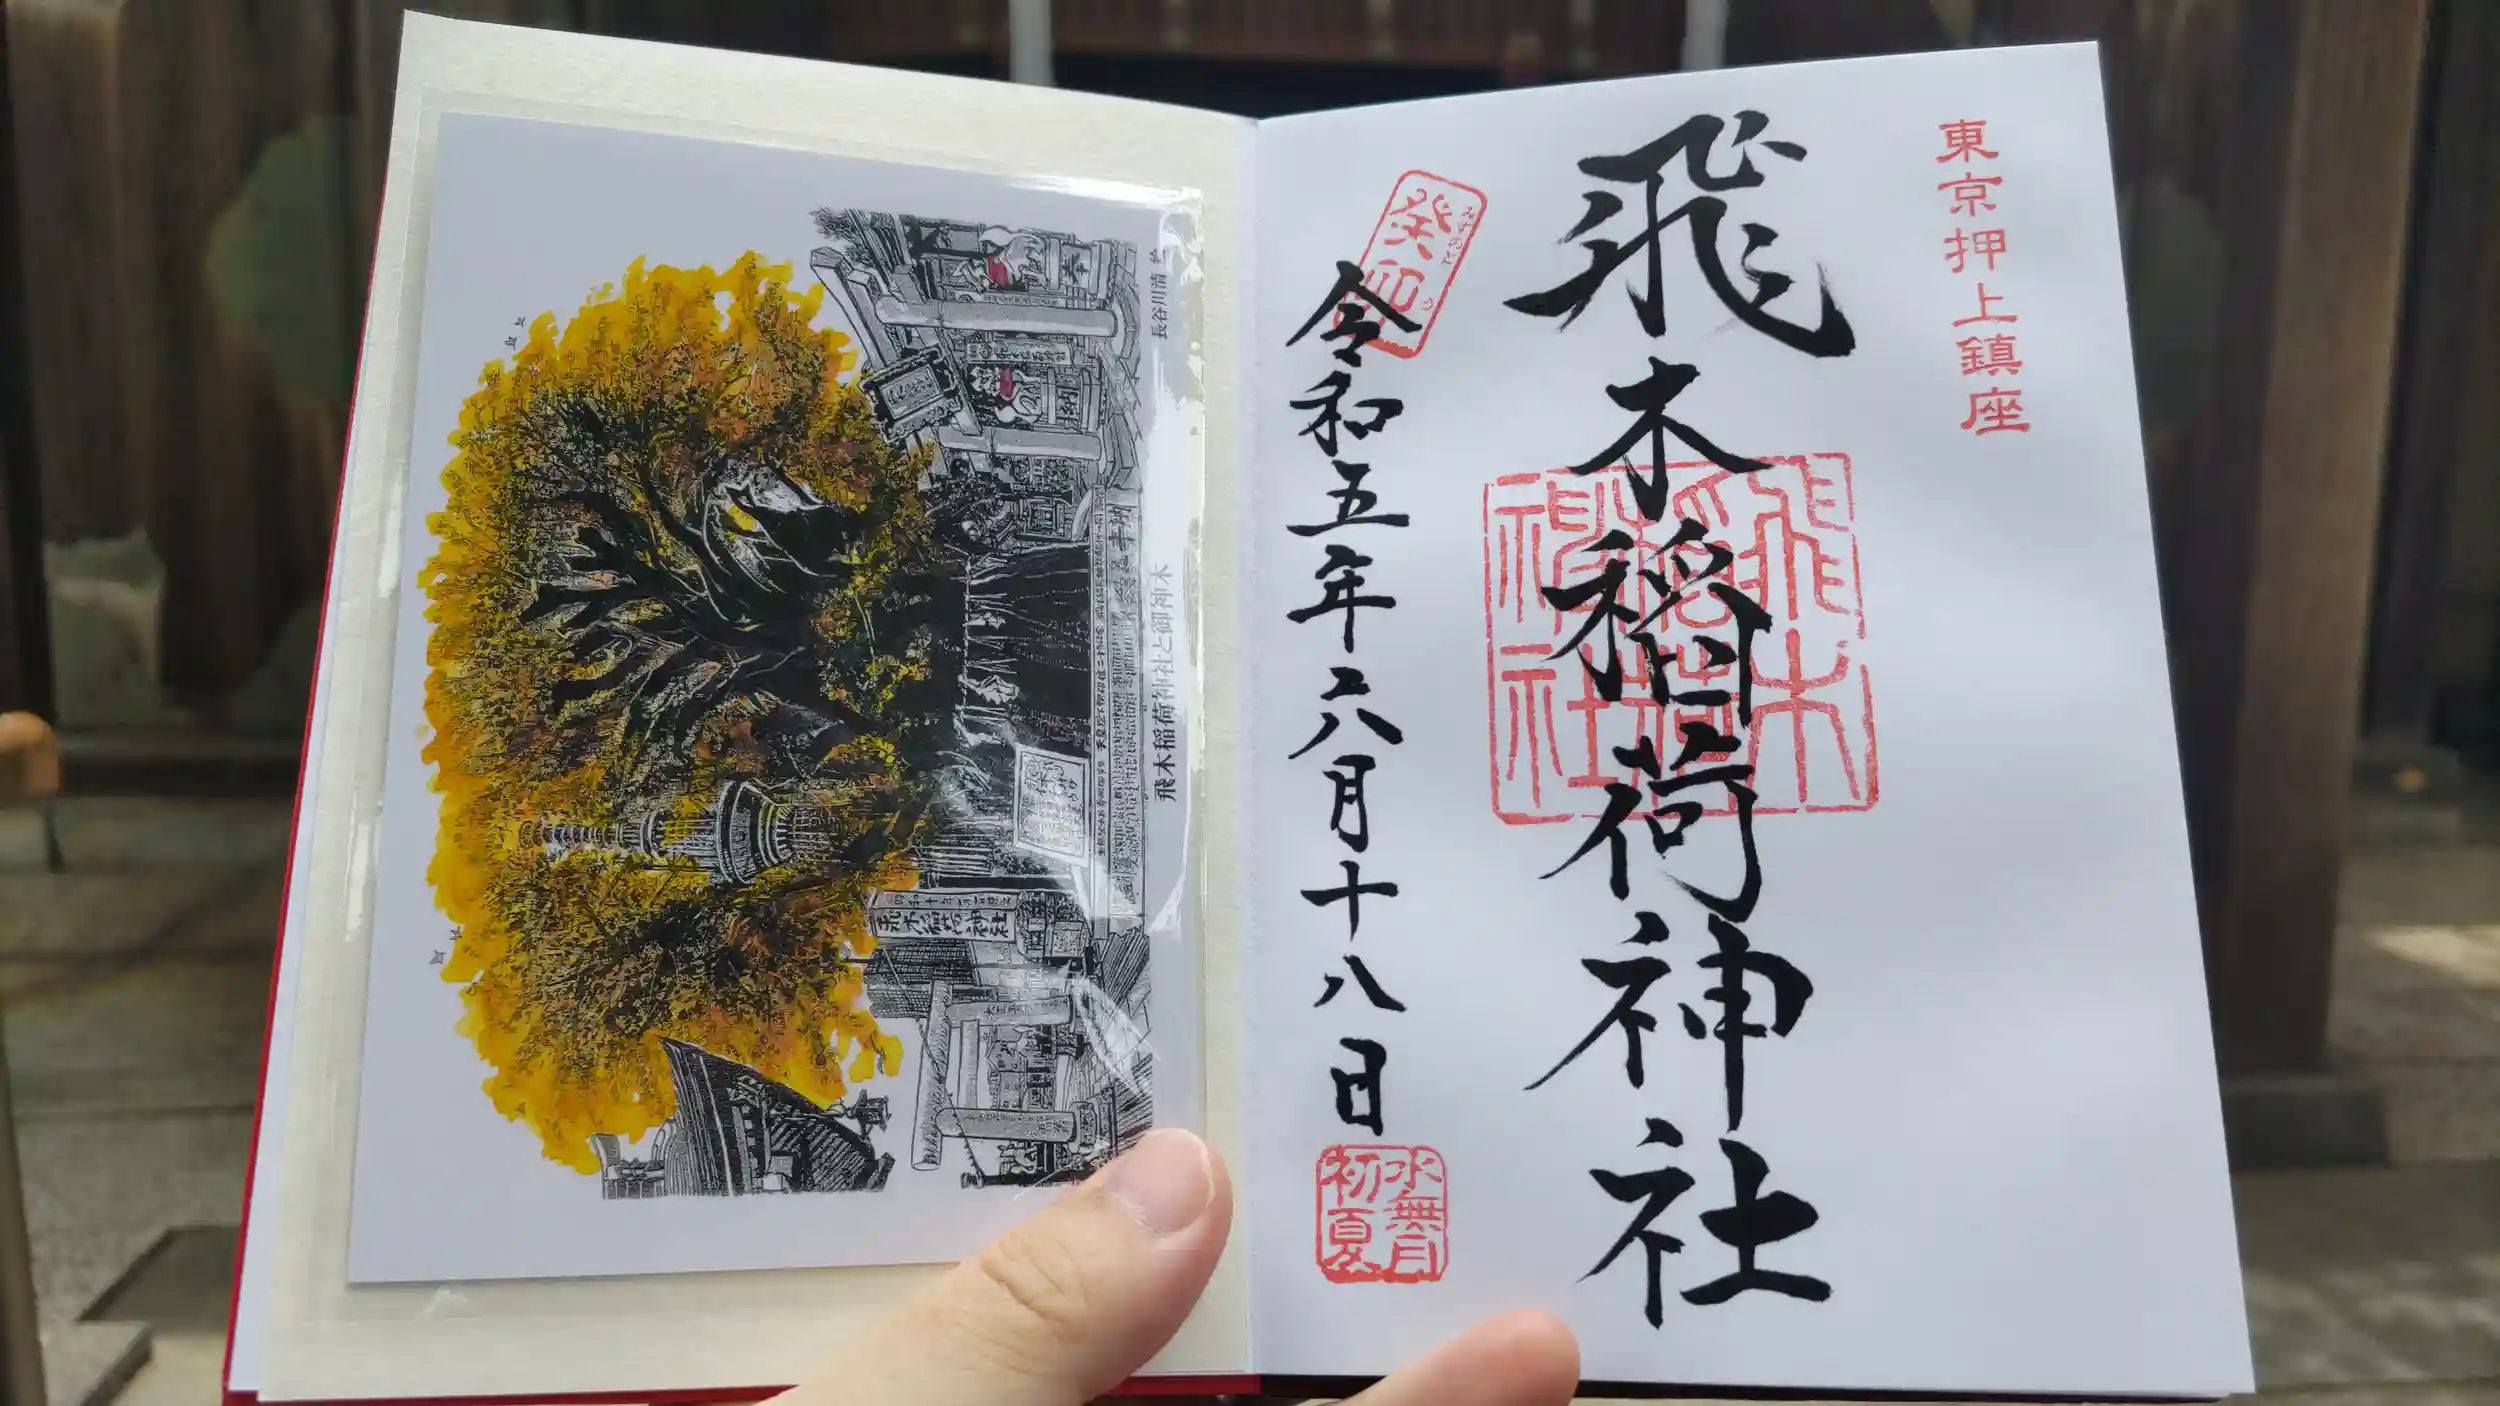 東京押上鎮座
飛木稲荷神社
飛木
稲荷
神社
癸卯
みずのと
う
令和五年六月十八日
水無月
初夏
長谷川清 絵
飛木稲荷神社と御神木
飛木稲荷神社
奉納